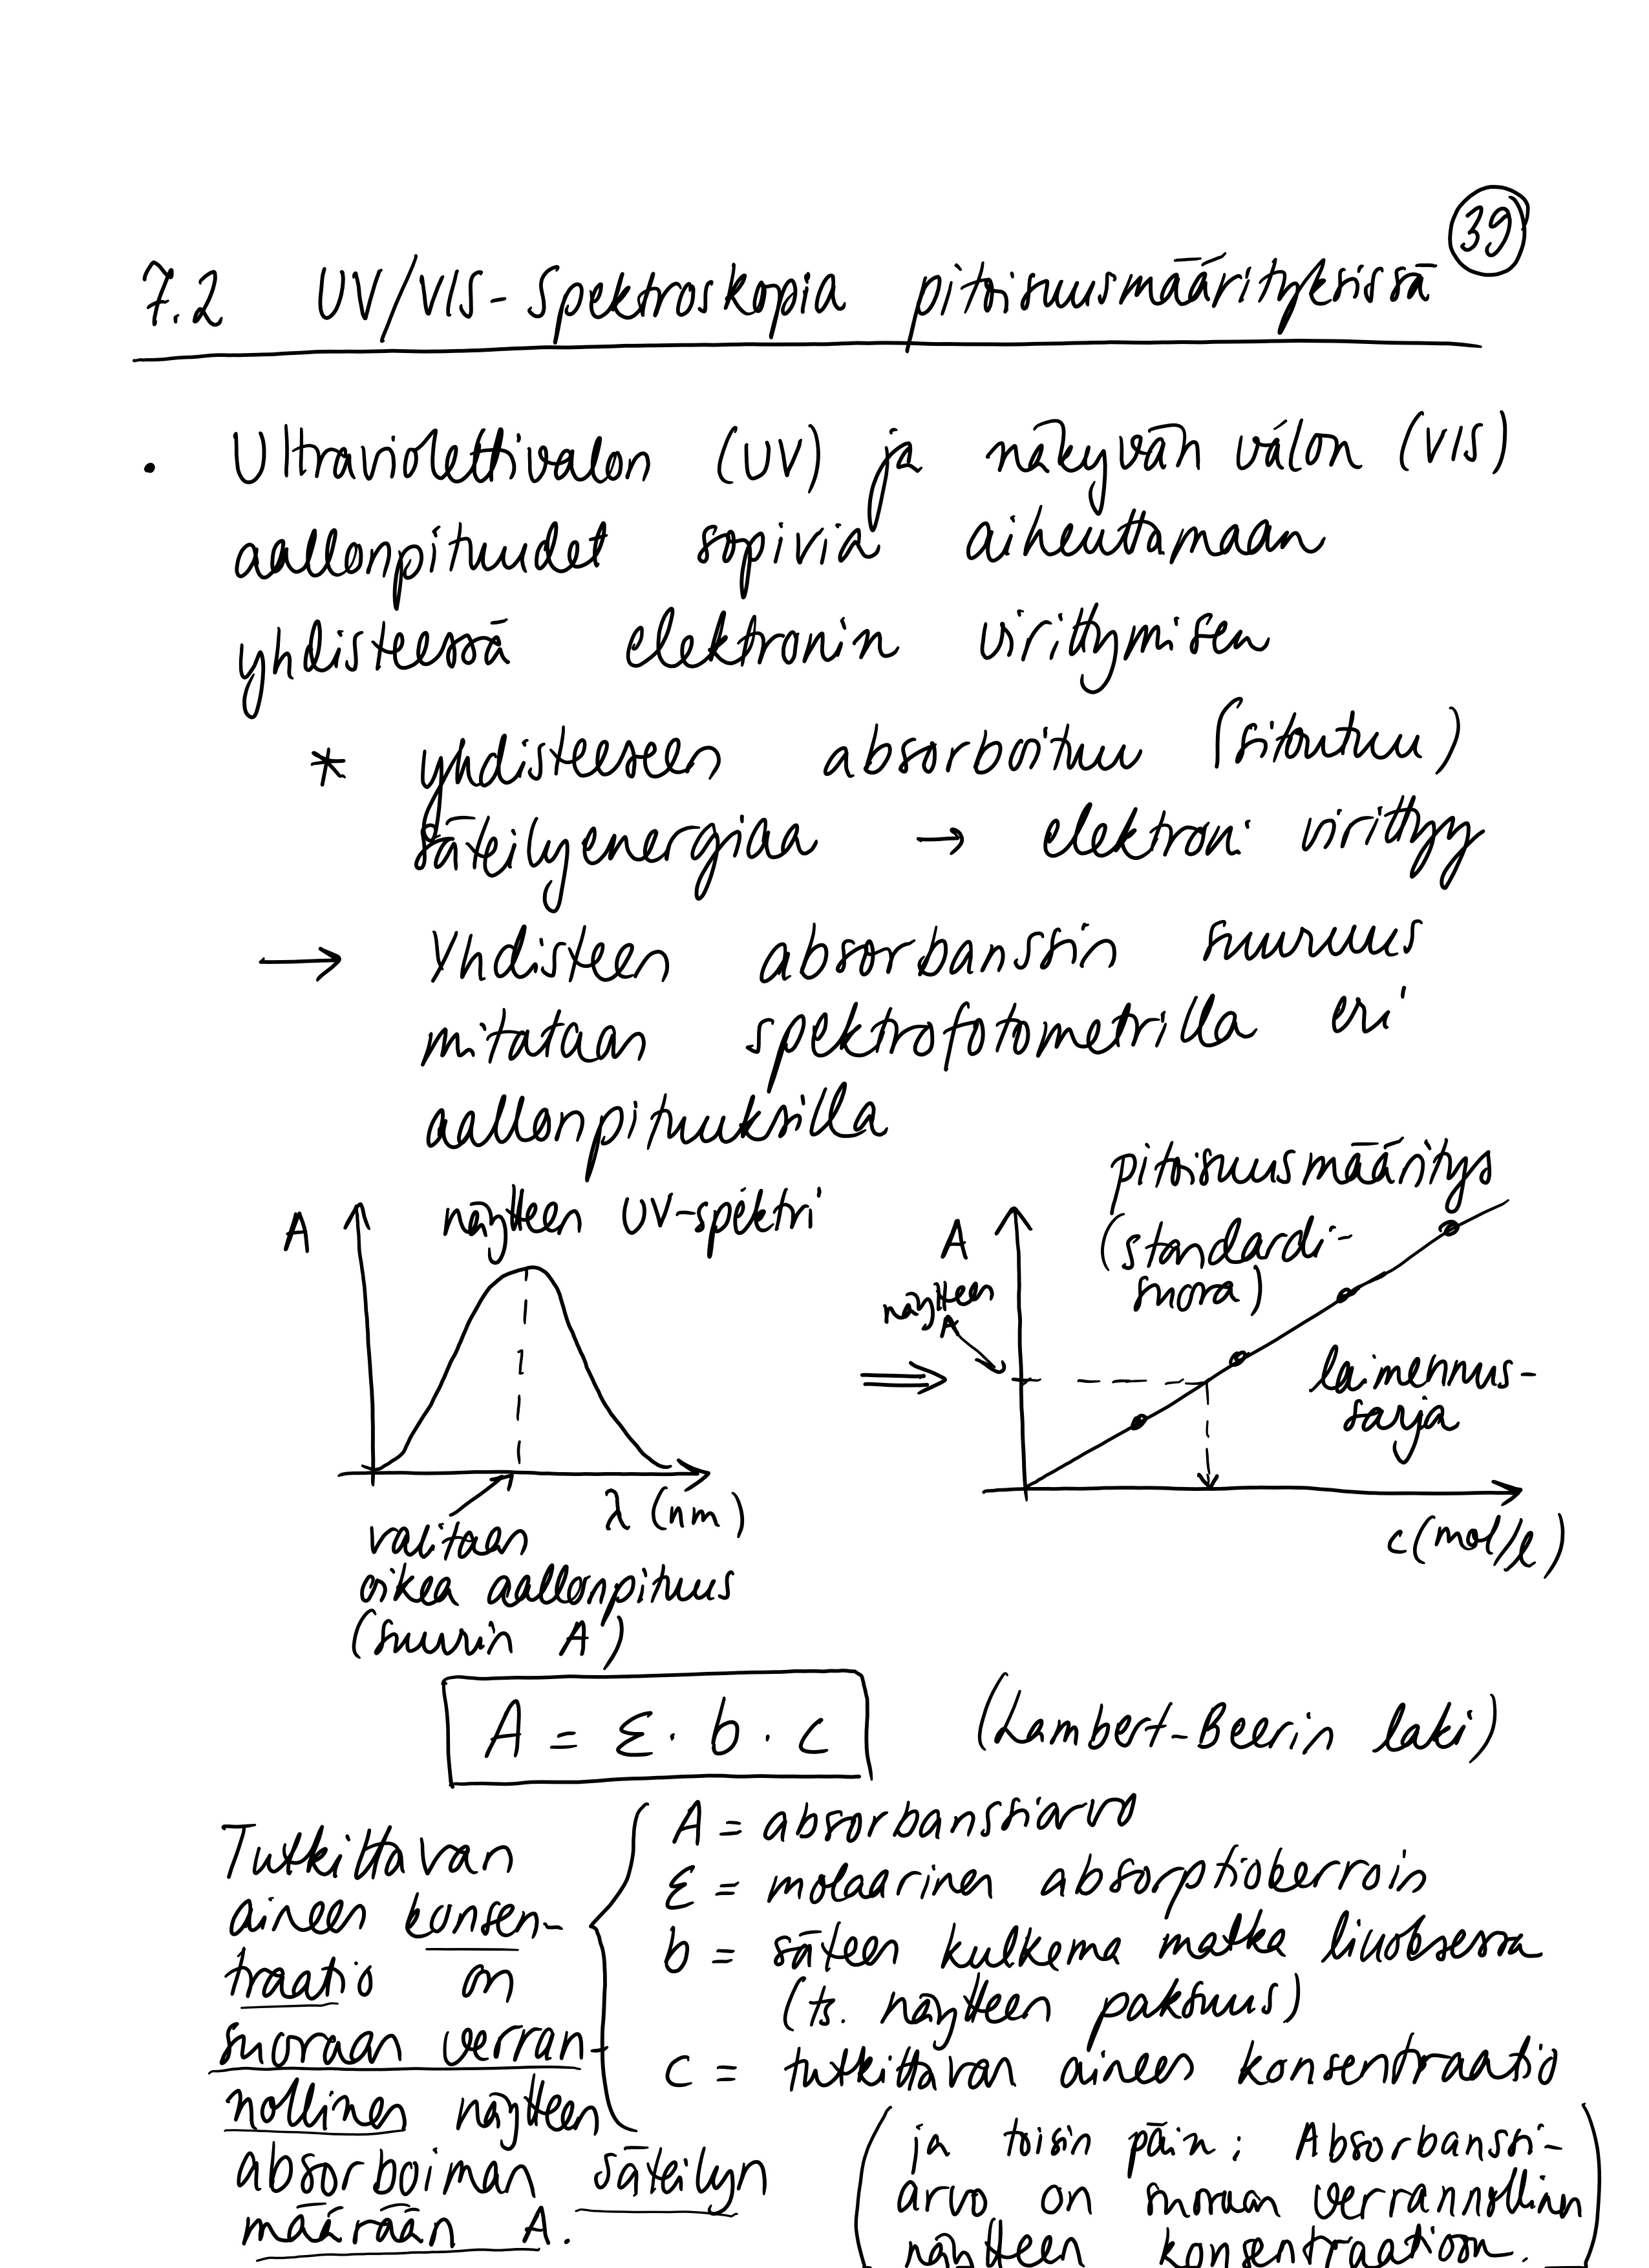 39
7.2 UV/VIS-spektroskopia pitoisuusmäärityksissä
• Ultraviolettivalon (UV) ja näkyvän valon (VIS)
aallonpituudet sopivia aiheuttamaan
yhdisteessä elektronin virittymisen
* yhdisteeseen absorboituu (sitoutuu)
säteilyenergiaa → elektroni virittyy
→ Yhdisteen absorbanssin suuruus
mitataan spektrofotometrilla eri
aallonpituuksilla
näytteen UV-spektri
A
λ (nm)
valitaan
oikea aallonpituus
(suurin A)
⇒
pitoisuusmääritys
(standardi-
suora)
A
näytteen
A
laimennus-
sarja
c (mol/l)
A = ε · b · c (Lambert-Beerin laki)
A = absorbanssiarvo
ε = molaarinen absorptiokerroin
b = säteen kulkema matka liuoksessa
(ts. näytteen paksuus)
c = tutkittavan aineen konsentraatio
Tutkittavan
aineen konsen-
traatio on
suoraan verran-
nollinen näytteen
absorboiman säteilyn
määrään A.
(ja toisin päin; Absorbanssi-
arvo on suoraan verrannollinen
näytteen konsentraatioon.)